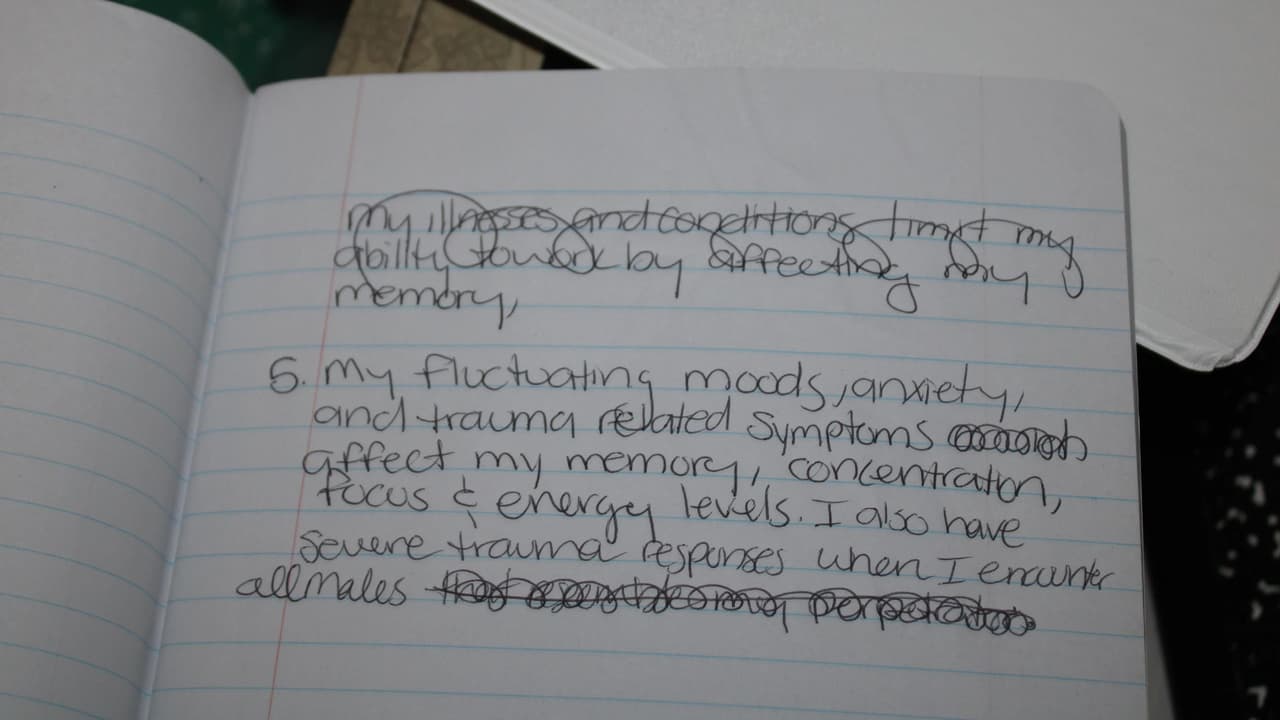 my illnesses and conditions limit my
ability to work by affecting my
memory,
5. My fluctuating moods, anxiety,
and trauma related symptoms
affect my memory, concentration,
focus & energy levels. I also have
severe trauma responses when I encounter
all males